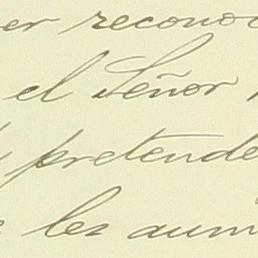 er reconoc
el Señor
pretende
les aum